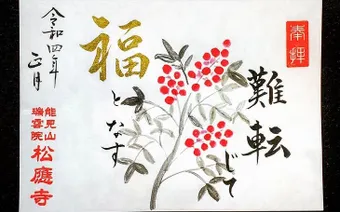 奉拝
難転じて
福
となす
令和四年
正月
能見山
瑞雲院
松應寺